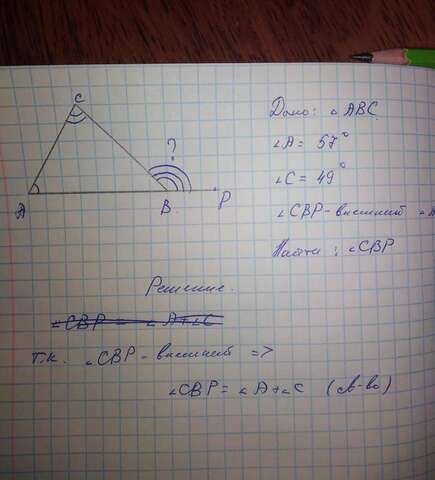 C
?
A
B
P
Дано: △ABC
∠A = 57°
∠C = 49°
∠CBP - внешний
Найти: ∠CBP
Решение.
∠CBP = ∠A+∠C
т.к. ∠CBP - внешний =>
∠CBP = ∠A+∠C (св-во)